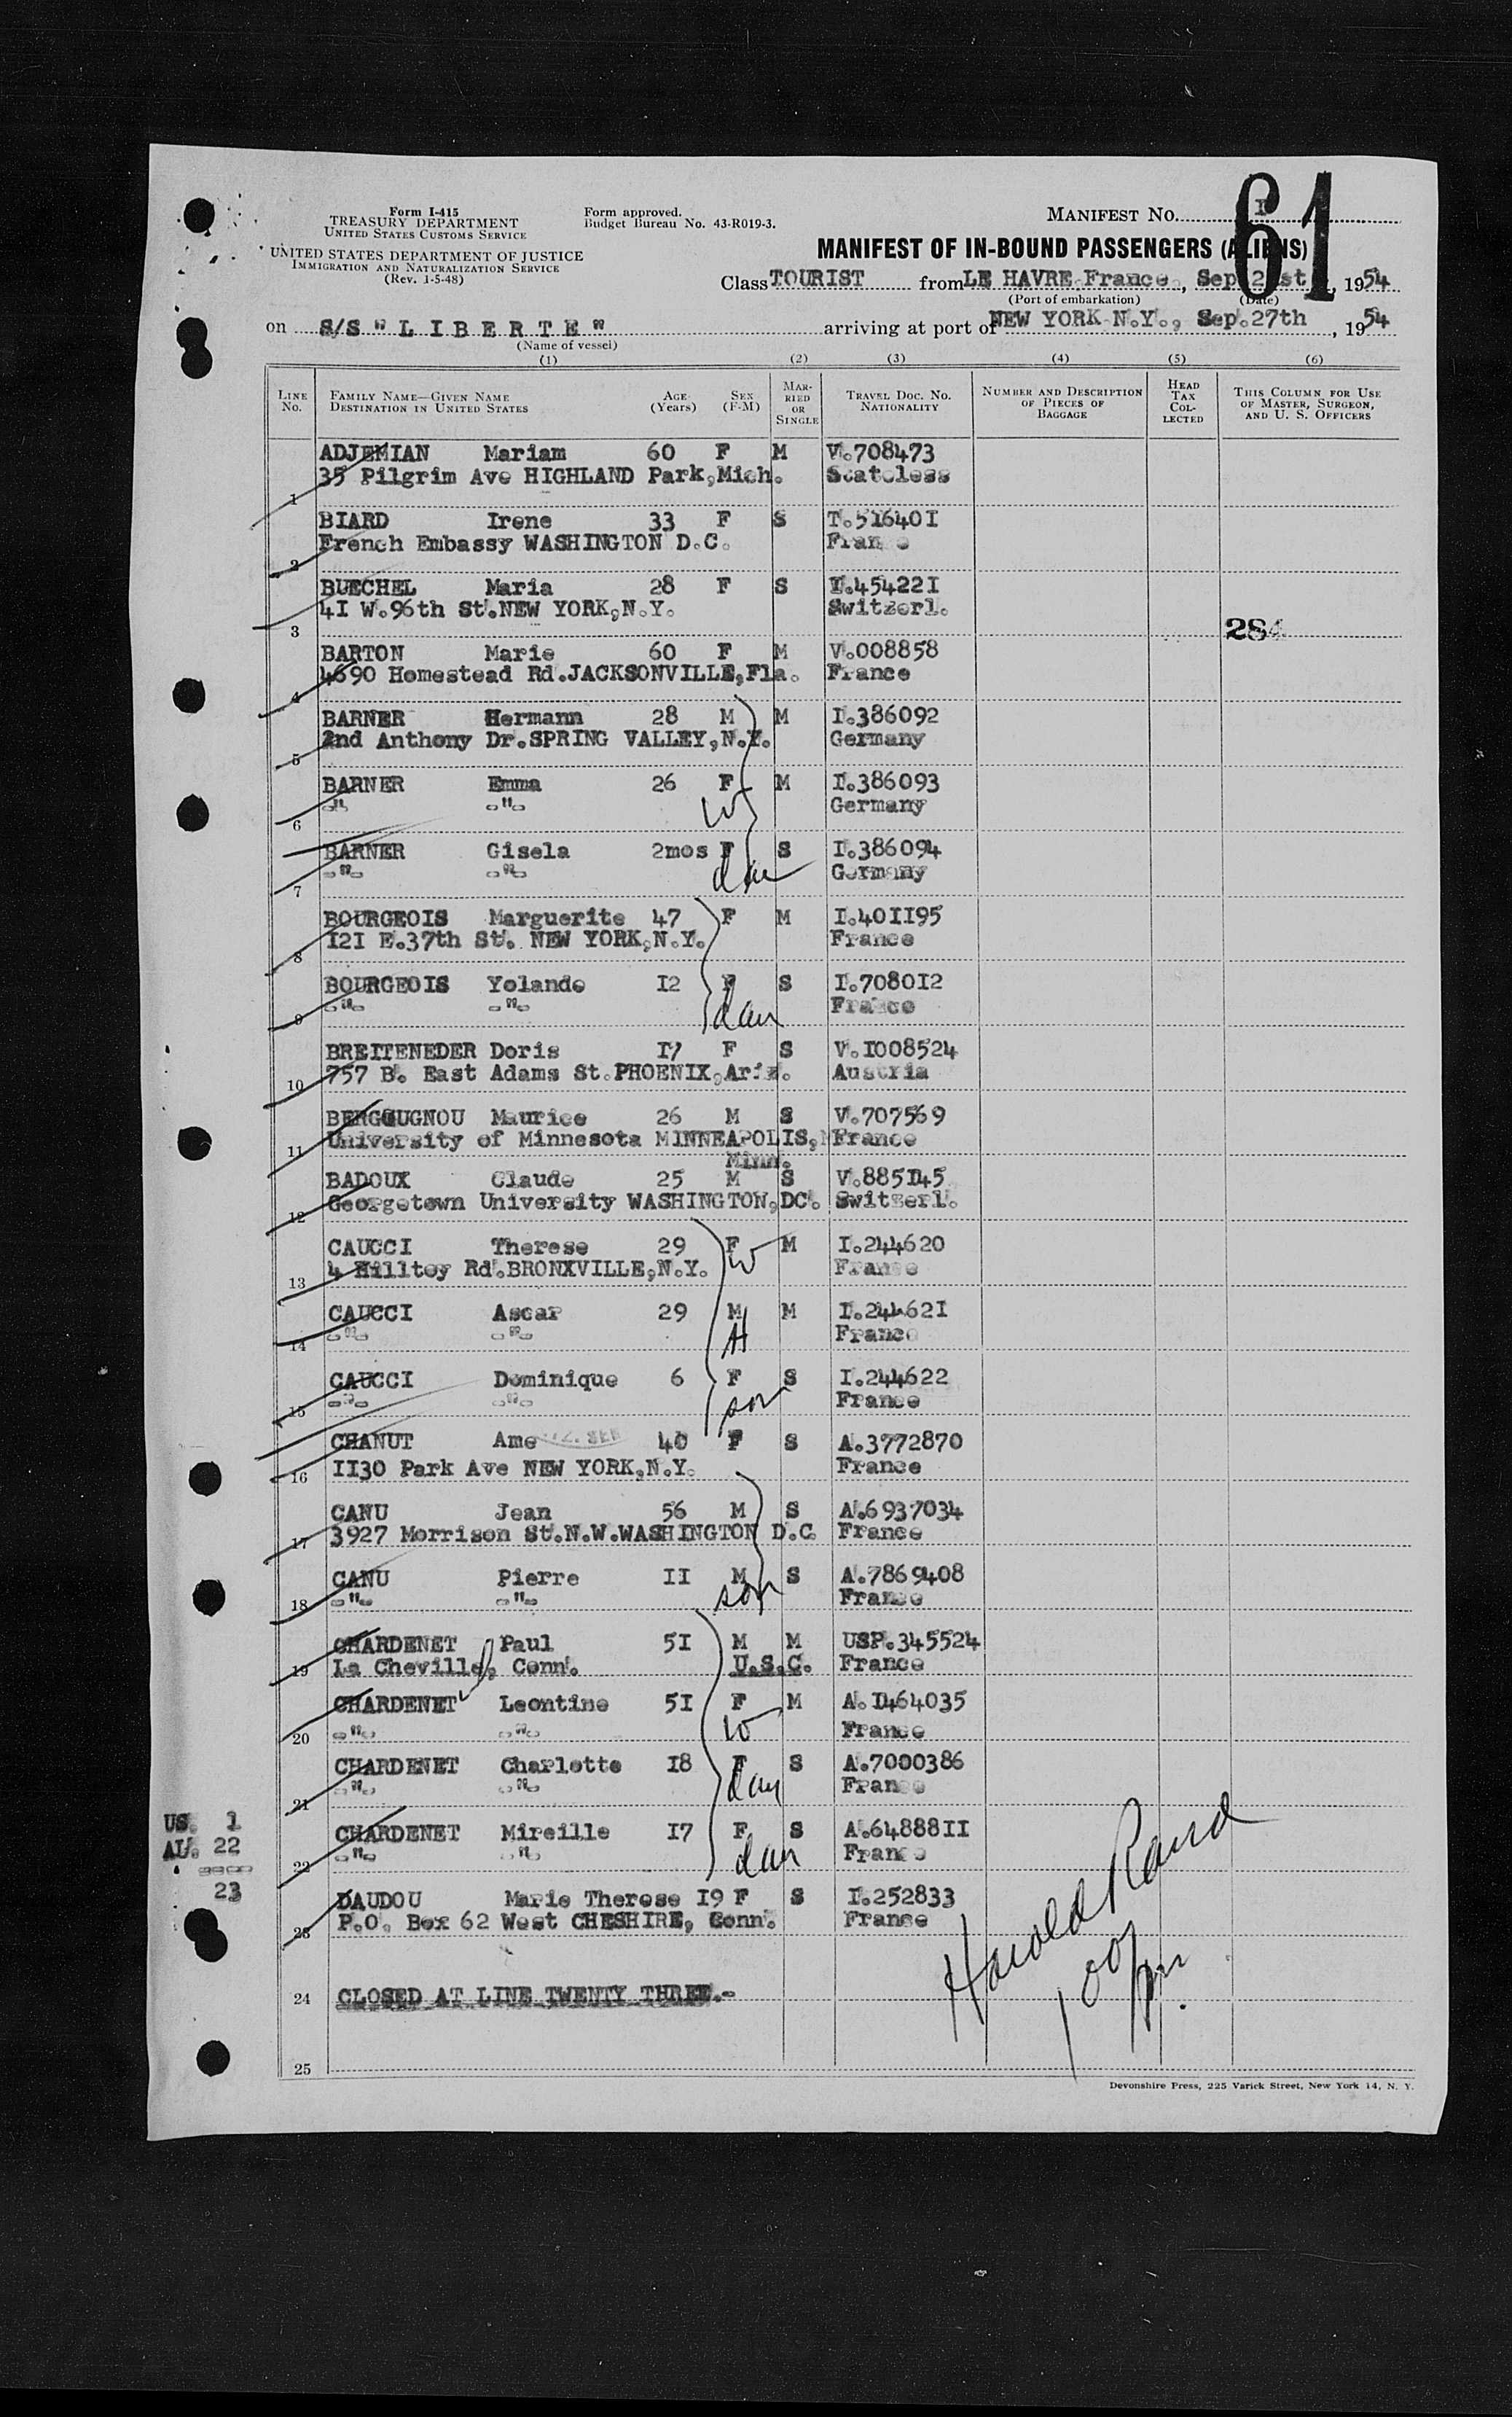 Form I-415
TREASURY DEPARTMENT
UNITED STATES CUSTOMS SERVICE
UNITED STATES DEPARTMENT OF JUSTICE
IMMIGRATION AND NATURALIZATION SERVICE
(Rev. 1-5-48)
Form approved.
Budget Bureau No. 43-R019-3.
MANIFEST No. I
61
MANIFEST OF IN-BOUND PASSENGERS (ALIENS)
Class TOURIST from LE HAVRE France, Sep 21st, 1954
(Port of embarkation) (Date)
on S/S " L I B E R T E " arriving at port of NEW YORK N.Y., Sep.27th, 1954
(Name of vessel)
(1) (2) (3) (4) (5) (6)
LINE No. FAMILY NAME—GIVEN NAME DESTINATION IN UNITED STATES AGE (Years) SEX (F-M) MARRIED OR SINGLE TRAVEL DOC. NO. NATIONALITY NUMBER AND DESCRIPTION OF PIECES OF BAGGAGE HEAD TAX COLLECTED THIS COLUMN FOR USE OF MASTER, SURGEON, AND U. S. OFFICERS
ADJEMIAN Mariam 60 F M V.708473
1 35 Pilgrim Ave HIGHLAND Park,Mich. Stateless
BIARD Irene 33 F S T.516401
2 French Embassy WASHINGTON D.C. France
BUECHEL Maria 28 F S I.454221
3 41 W.96th St.NEW YORK,N.Y. Switzerl.
284
BARTON Marie 60 F M V.008858
4 4690 Homestead Rd.JACKSONVILLE,Fla. France
BARNER Hermann 28 M M I.386092
5 2nd Anthony Dr.SPRING VALLEY,N.Y. Germany
BARNER Emma 26 F M I.386093
6 -"- -"- W Germany
BARNER Gisela 2mos F S I.386094
7 -"- -"- dau Germany
BOURGEOIS Marguerite 47 F M I.401195
8 121 E.37th St. NEW YORK,N.Y. France
BOURGEOIS Yolande 12 F S I.708012
9 -"- -"- dau France
BREITENEDER Doris 17 F S V.1008524
10 757 B. East Adams St.PHOENIX,Ariz. Austria
BERGOUGNOU Maurice 26 M S V.707569
11 University of Minnesota MINNEAPOLIS, France
Minn.
BADOUX Claude 25 M S V.885145
12 Georgetown University WASHINGTON,DC. Switzerl.
CAUCCI Therese 29 F W M I.244620
13 4 Hilltoy Rd.BRONXVILLE,N.Y. France
CAUCCI Ascar 29 M M I.244621
14 -"- -"- H France
CAUCCI Dominique 6 F S I.244622
15 -"- -"- son France
CHANUT Ame 40 F S A.3772870
16 1130 Park Ave NEW YORK,N.Y. France
CANU Jean 56 M S A.6937034
17 3927 Morrison St.N.W.WASHINGTON D.C. France
CANU Pierre 11 M S A.7869408
18 -"- -"- son France
CHARDENET Paul 51 M M USP.345524
19 La Cheville, Conn. U.S.C. France
CHARDENET Leontine 51 F M A.1464035
20 -"- -"- W France
CHARDENET Charlotte 18 F S A.7000386
21 -"- -"- dau France
CHARDENET Mireille 17 F S A.6488811
22 -"- -"- dau France
DAUDOU Marie Therese 19 F S I.252833
23 P.O. Box 62 West CHESHIRE, Conn. France
US. 1
AL. 22
----
23
24 CLOSED AT LINE TWENTY THREE.-
Harold Rand
1 00 pm.
25
Devonshire Press, 225 Varick Street, New York 14, N. Y.